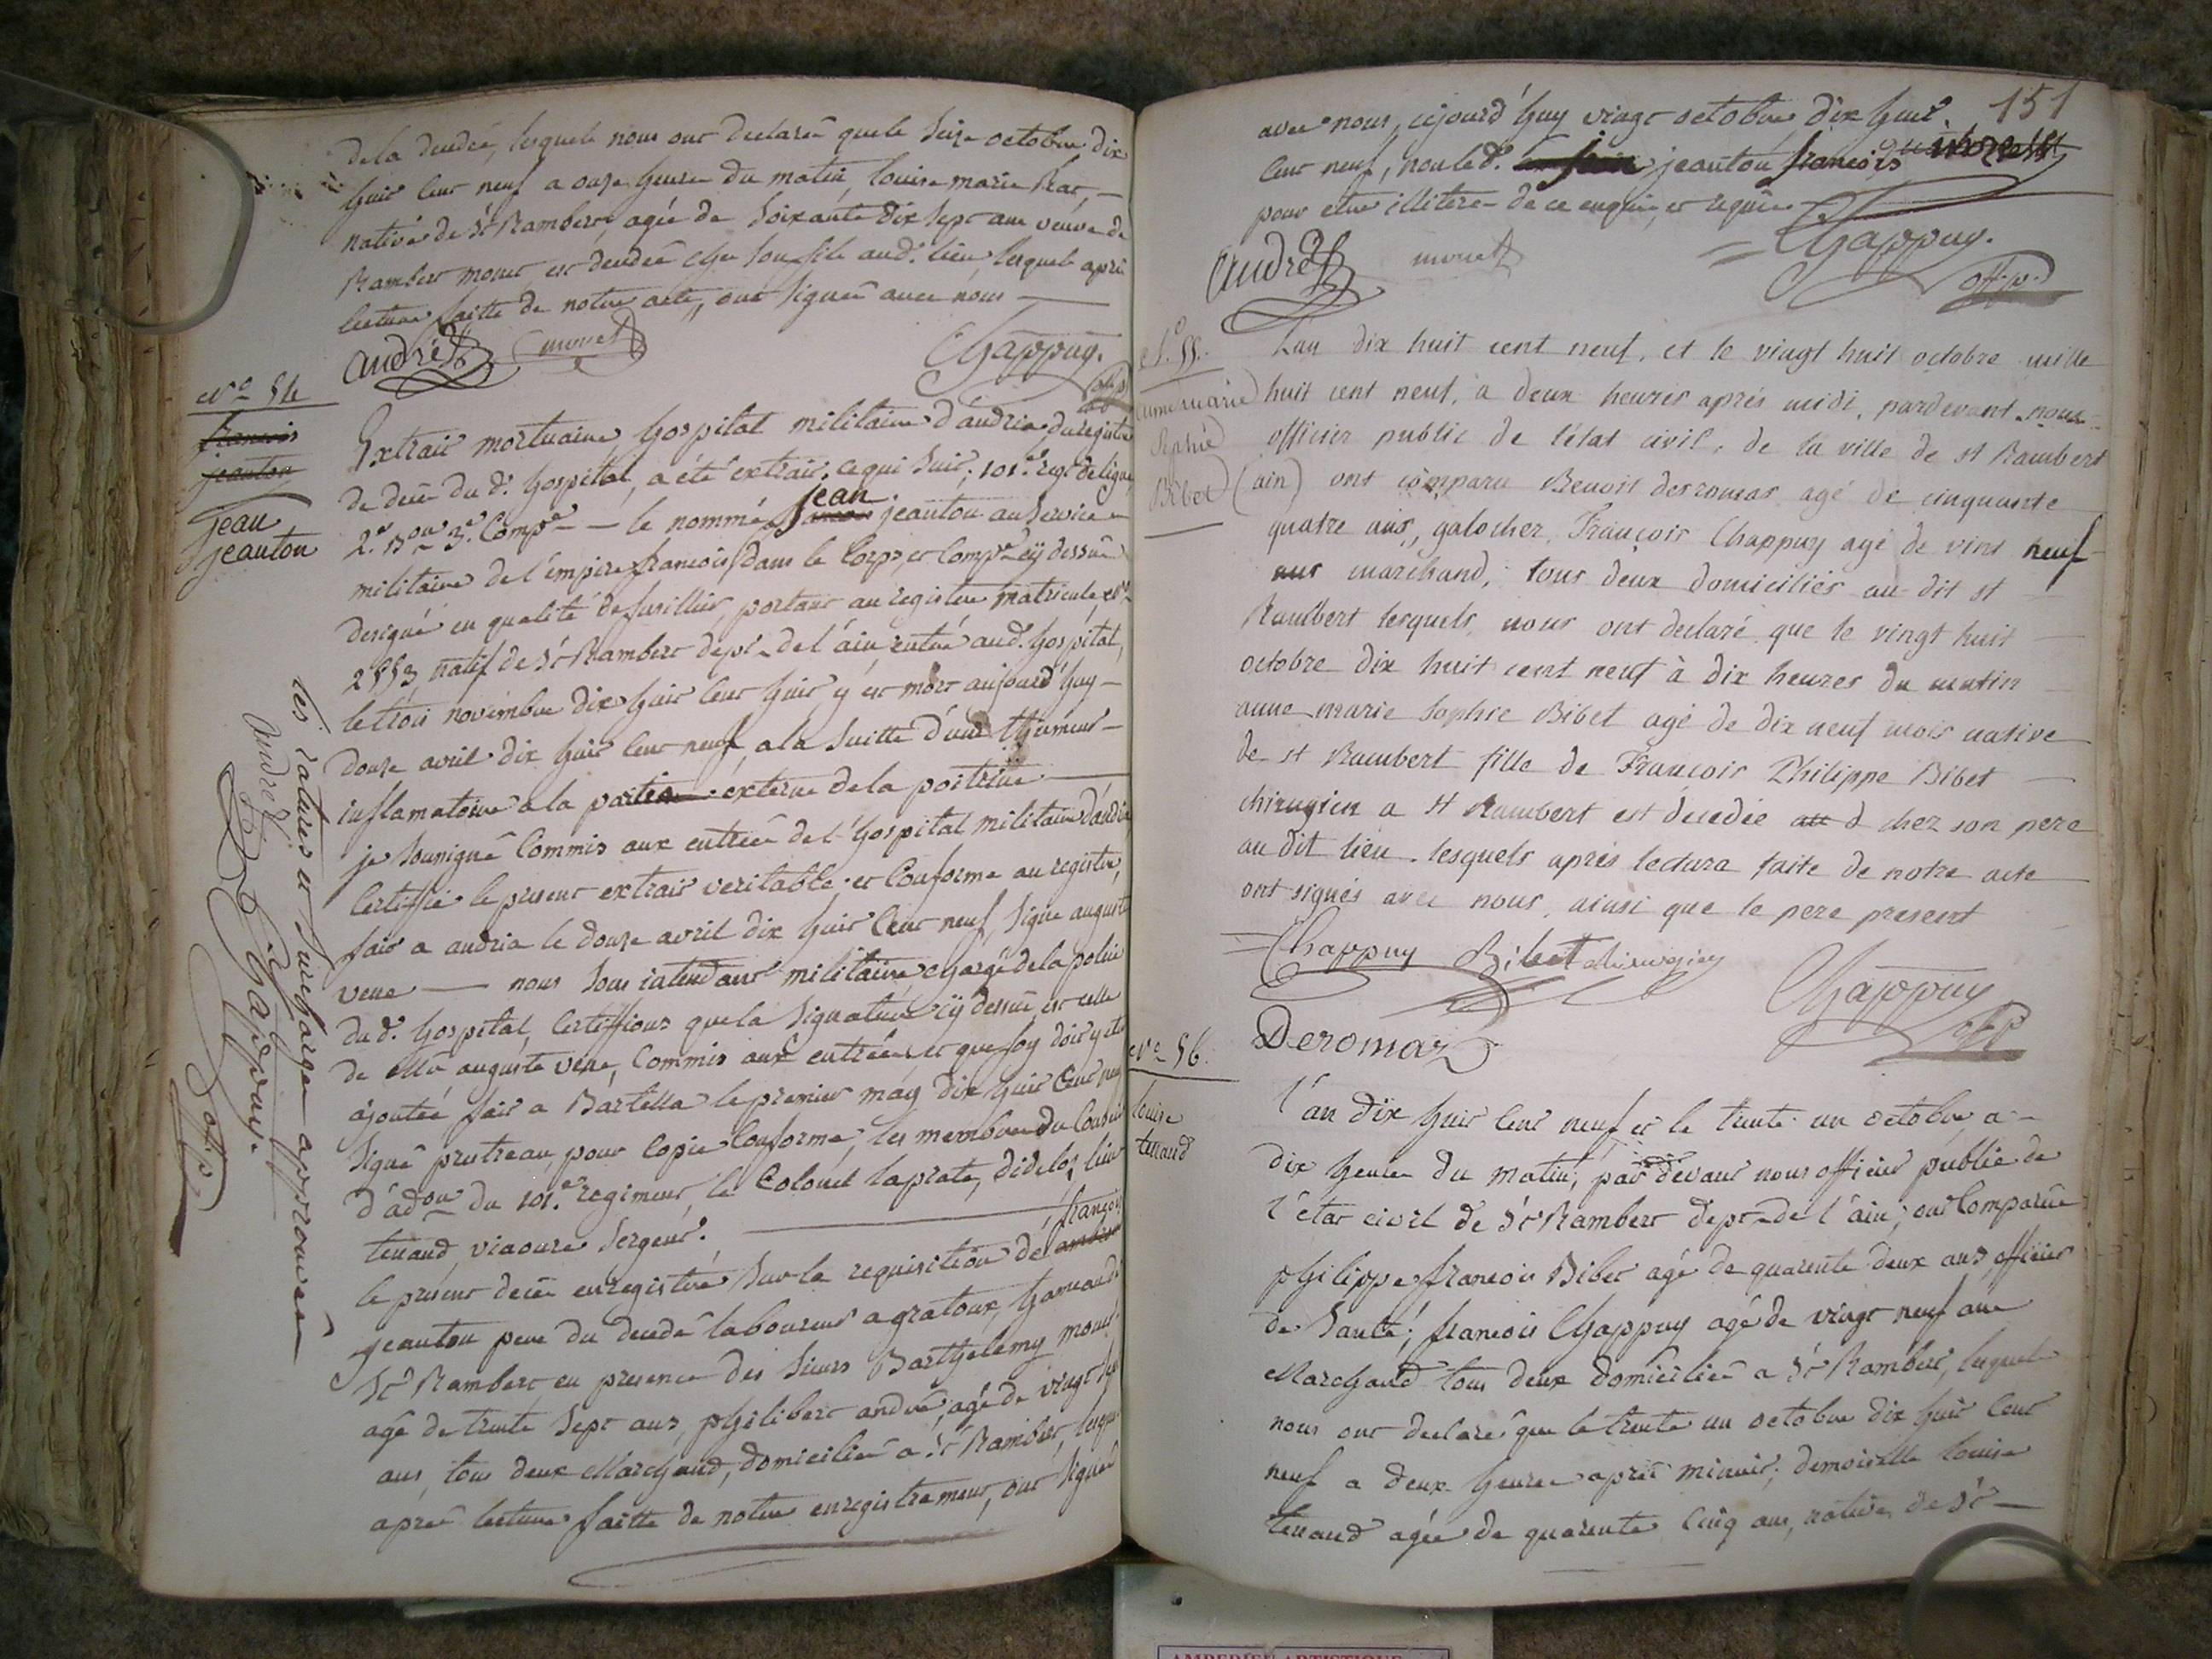 de la deudée, lesquels nous ont declaré que le seize octobre dix
huit cent neuf a onze heures du matin, louise marie Rac,
native de St Rambert, agée de soixante dix sept ans veuve de
Rambert monet est deudée chez son fils aud. lieu, lesquels après
lecture faitte de notre acte, ont signés avec nous
andré monet Chappuy. off. p.
N° 54
francois
jeanton
jean
jeanton
Extrait mortuaire, hospital militaire d'andria, du registre
de decès du d. hospital, a été extrait, ce qui suit; 101.e regt de ligne
2.e B.on 3.e Comp.e — le nommé jean jeanton au service
militaire de l'empire francois dans le Corps, et Comp.e cÿ dessus
designé en qualité de fusillier, portant au registre matricule N°
2553, natif de St Rambert dep.t de l'ain, entré aud. hospital,
le trois novembre dix huit cent huit, y est mort aujourd'huy
douze avril dix huit cent neuf, a la suitte d'une thumeur
inflamatoire a la partie externe de la poitrine
je sousigné Commis aux entrées de l'hospital militaire d'andria
Certiffie le present extrait veritable et Conforme au registre,
fait a andria le douze avril dix huit cent neuf, signé auguste
vene — nous sous intendant militaire, chargé de la police
du d. hospital, Certiffions que la signature cÿ dessus, est celle
de Mr auguste vene, Commis aux entrées et que foy doit y etre
ajoutée fait a Barletta le premier may dix huit cent neuf
signé prutreau, pour Copie Conforme, les membres du Conseil
d'ad.on du 101.e regiment, le Colonel laprate, didelot, lieu
tenand, viaoure sergent.
le present decès enregistré sur la requisition de françois
jeanton pere du decedé laboureur a gratoux, hameau de
St Rambert en presence des sieurs Barthelemy monet
agé de trente sept ans, philibert andré, agé de vingt sept
ans, tous deux Marchand, domicilié a St Rambert, lesquels
après lecture faitte de notre enregistrement, ont signés
les ratures et surcharges approuvées
andré Chappuy. off. p.
151
avec nous, cejourd'huy vingt octobre dix huit
cent neuf, non led. jeanton francois
pour etre illiteré de ce enquis, et requis
andré monet Chappuy. off. p.
N° 55.
anne marie
Sophie
Bibet
L'an dix huit cent neuf, et le vingt huit octobre mille
huit cent neuf, a deux heures aprés midi, pardevant nous
officier public de l'état civil, de la ville de st Rambert
(ain) ont comparu Benoit desromas agé de cinquante
quatre ans, galocher, François Chappuy agé de vint neuf
ans marchand, tous deux domiciliés au dit st
Rambert lesquels, nous ont declaré que le vingt huit
octobre dix huit cent neuf à dix heures du matin
anne marie Sophie Bibet agé de dix neuf mois native
de st Rambert fille de François Philippe Bibet
chirugien a st Rambert est decedée au d chez son pere
au dit lieu. lesquels aprés lectura faite de notre acte
ont signés avec nous, ainsi que le pere present
Chappuy Bibet chirurgien Chappuy off. p.
Deromas
N° 56.
louise
tenand
l'an dix huit cent neuf et le trente un octobre a
dix heures du matin, par devant nous officier public de
l'état civil de St Rambert dep.t de l'ain, ont Comparus
philippe francois Bibet agé de quarente deux ans, officier
de Santé, francois Chappuy agé de vingt neuf ans
Marchand tous deux domicilié a St Rambert, lesquels
nous ont declaré que le trente un octobre dix huit cent
neuf a deux heures après minuit, demoiselle louise
tenand agée de quarente cinq ans, native de St